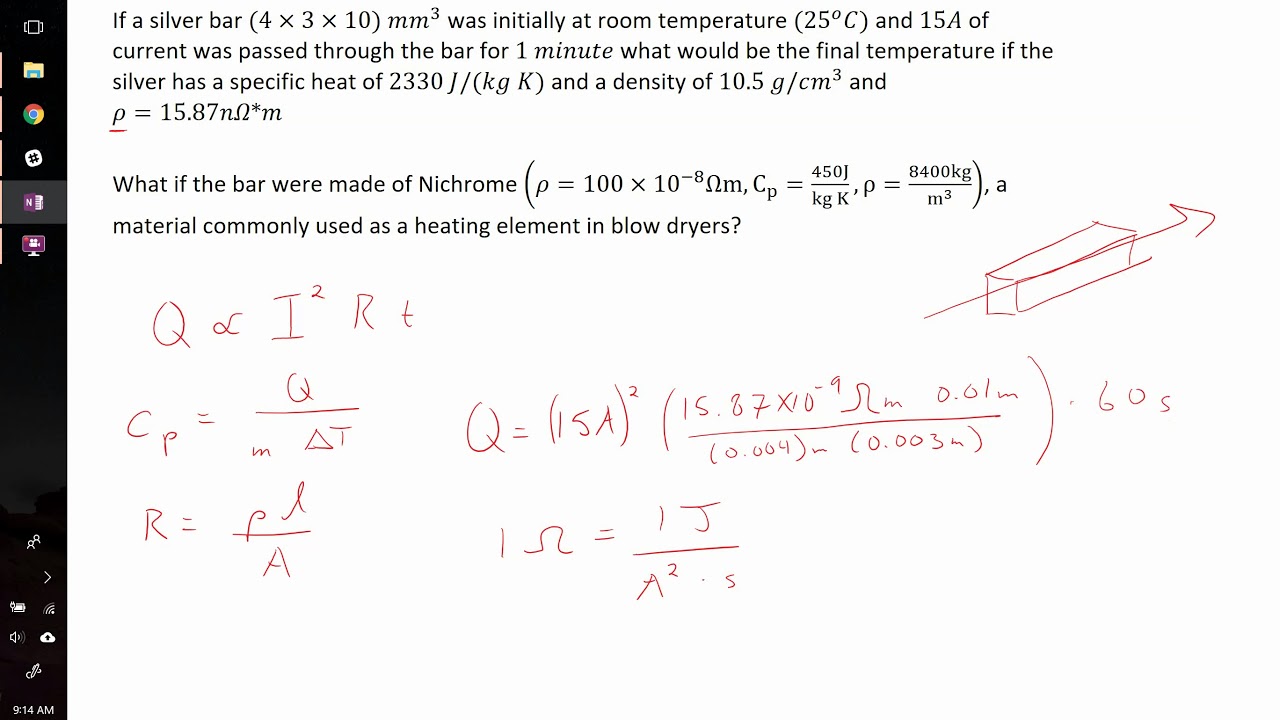 If a silver bar (4 × 3 × 10) mm³ was initially at room temperature (25°C) and 15A of
current was passed through the bar for 1 minute what would be the final temperature if the
silver has a specific heat of 2330 J/(kg K) and a density of 10.5 g/cm³ and
ρ = 15.87nΩ*m
What if the bar were made of Nichrome (ρ = 100 × 10⁻⁸Ωm, Cₚ = 450J/kg K, ρ = 8400kg/m³), a
material commonly used as a heating element in blow dryers?
Q ∝ I² R t
Cₚ = Q / m ΔT
Q = (15A)² (15.87×10⁻⁹ Ωm 0.01m / (0.004)m (0.003m)) · 60s
R = ρl / A
1 Ω = 1 J / A² · s
9:14 AM